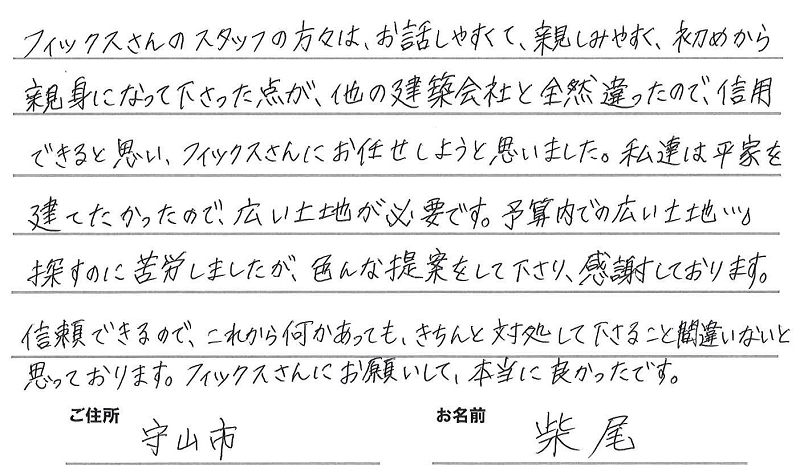 フィックスさんのスタッフの方々は、お話しやすくて、親しみやすく、初めから
親身になって下さった点が、他の建築会社と全然違ったので、信用
できると思い、フィックスさんにお任せしようと思いました。私達は平家を
建てたかったので、広い土地が必要です。予算内での広い土地…♪
探すのに苦労しましたが、色んな提案をして下さり、感謝しております。
信頼できるので、これから何かあっても、きちんと対処して下さること間違いないと
思っております。フィックスさんにお願いして、本当に良かったです。
ご住所 守山市 お名前 柴尾